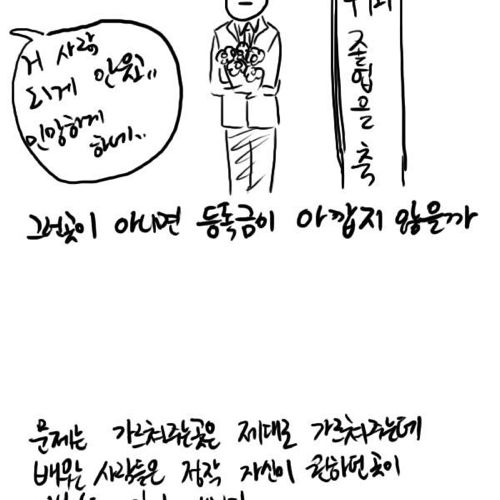 거 사람
되게 안웃고..
민망하게
하네..
졸업을 축
그런곳이 아니면 등록금이 아깝지 않을까
문제는 가르쳐주는곳은 제대로 가르쳐주는데
배우는 사람들은 정작 자신이 원하던곳이